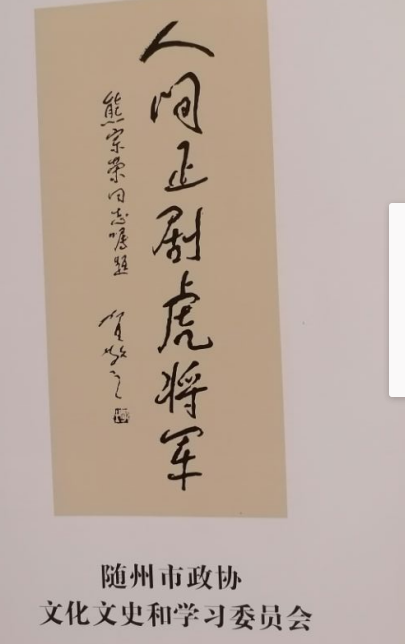 人间正剧虎将军
熊宗荣同志嘱题
贺敬之
随州市政协
文化文史和学习委员会